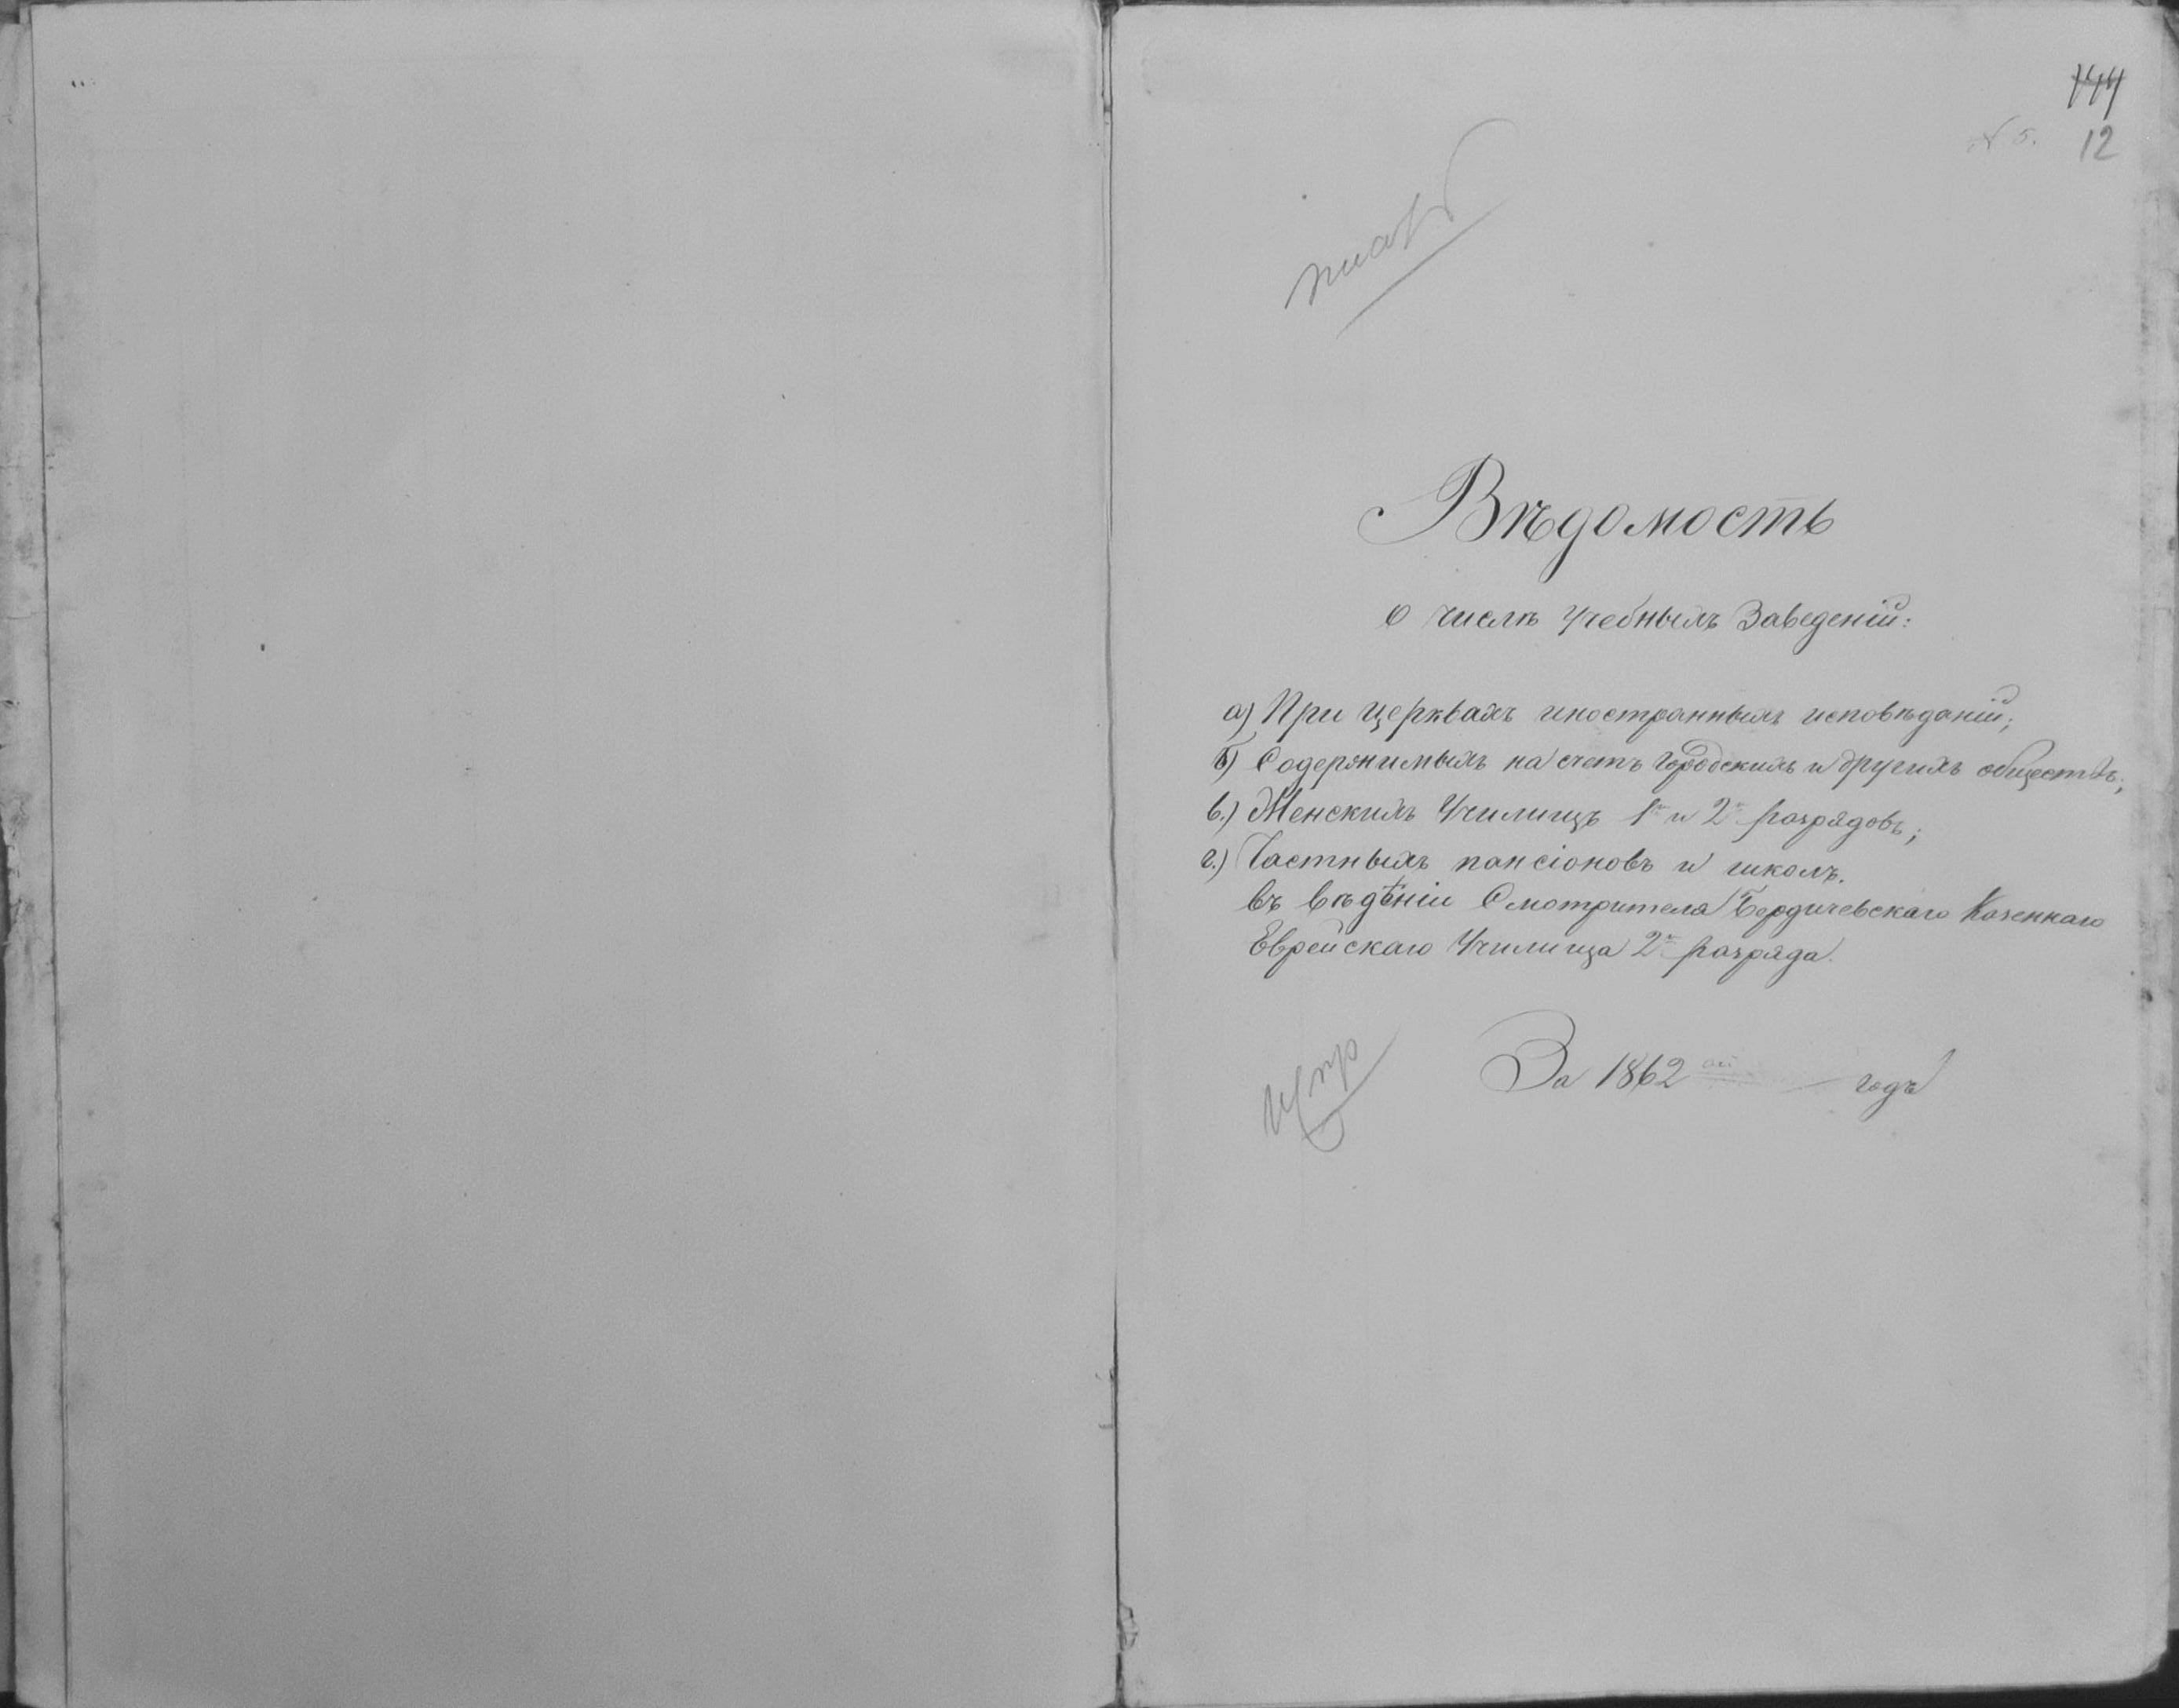 144
N 5. 12
Вѣдомость
о числѣ Учебныхъ Заведеній:
а) При церквахъ иностранныхъ исповѣданій;
б) Содержимыхъ на счетъ городскихъ и другихъ обществъ;
в.) Женскихъ Училищъ 1го и 2го разрядовъ;
г.) Частныхъ пансіоновъ и школъ.
въ вѣдѣніи Смотрителя Бердичевскаго Казеннаго
Еврейскаго Училища 2го разряда.
За 1862ой годъ